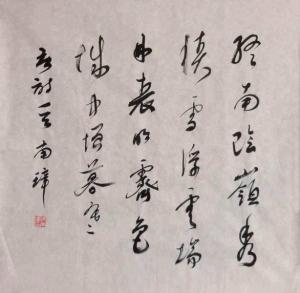 終南陰嶺秀
積雪浮雲端
林表明霽色
城中增暮寒
詩一首南